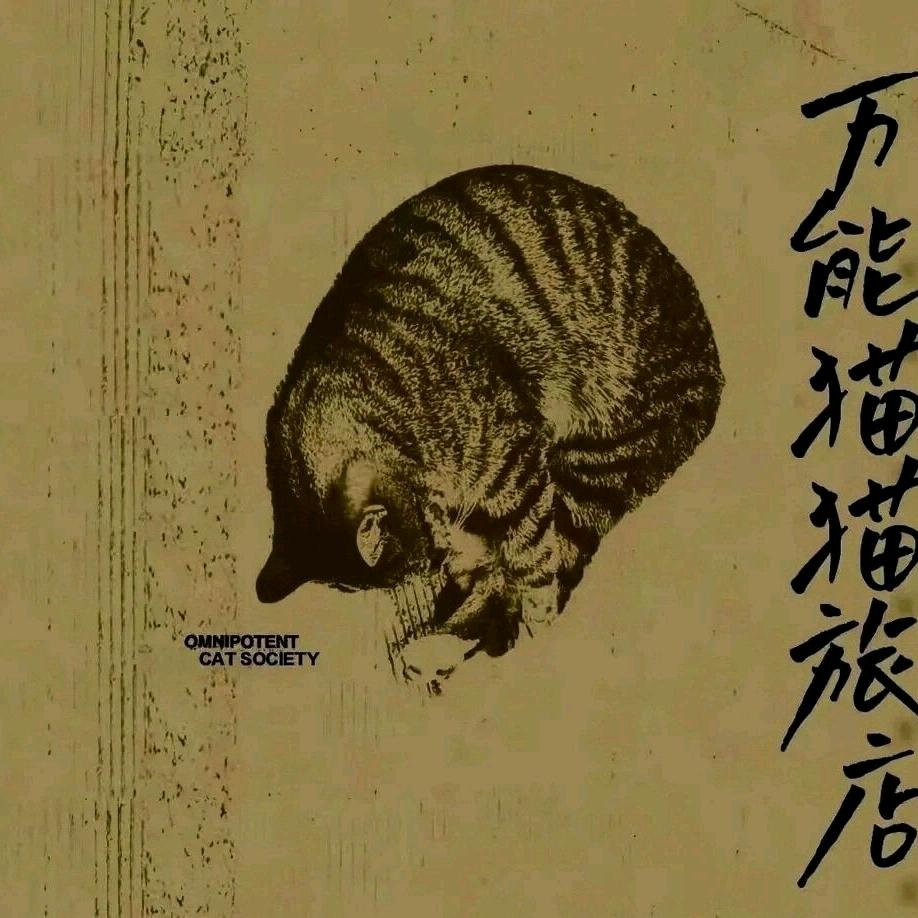 万能猫猫旅店
OMNIPOTENT
CAT SOCIETY